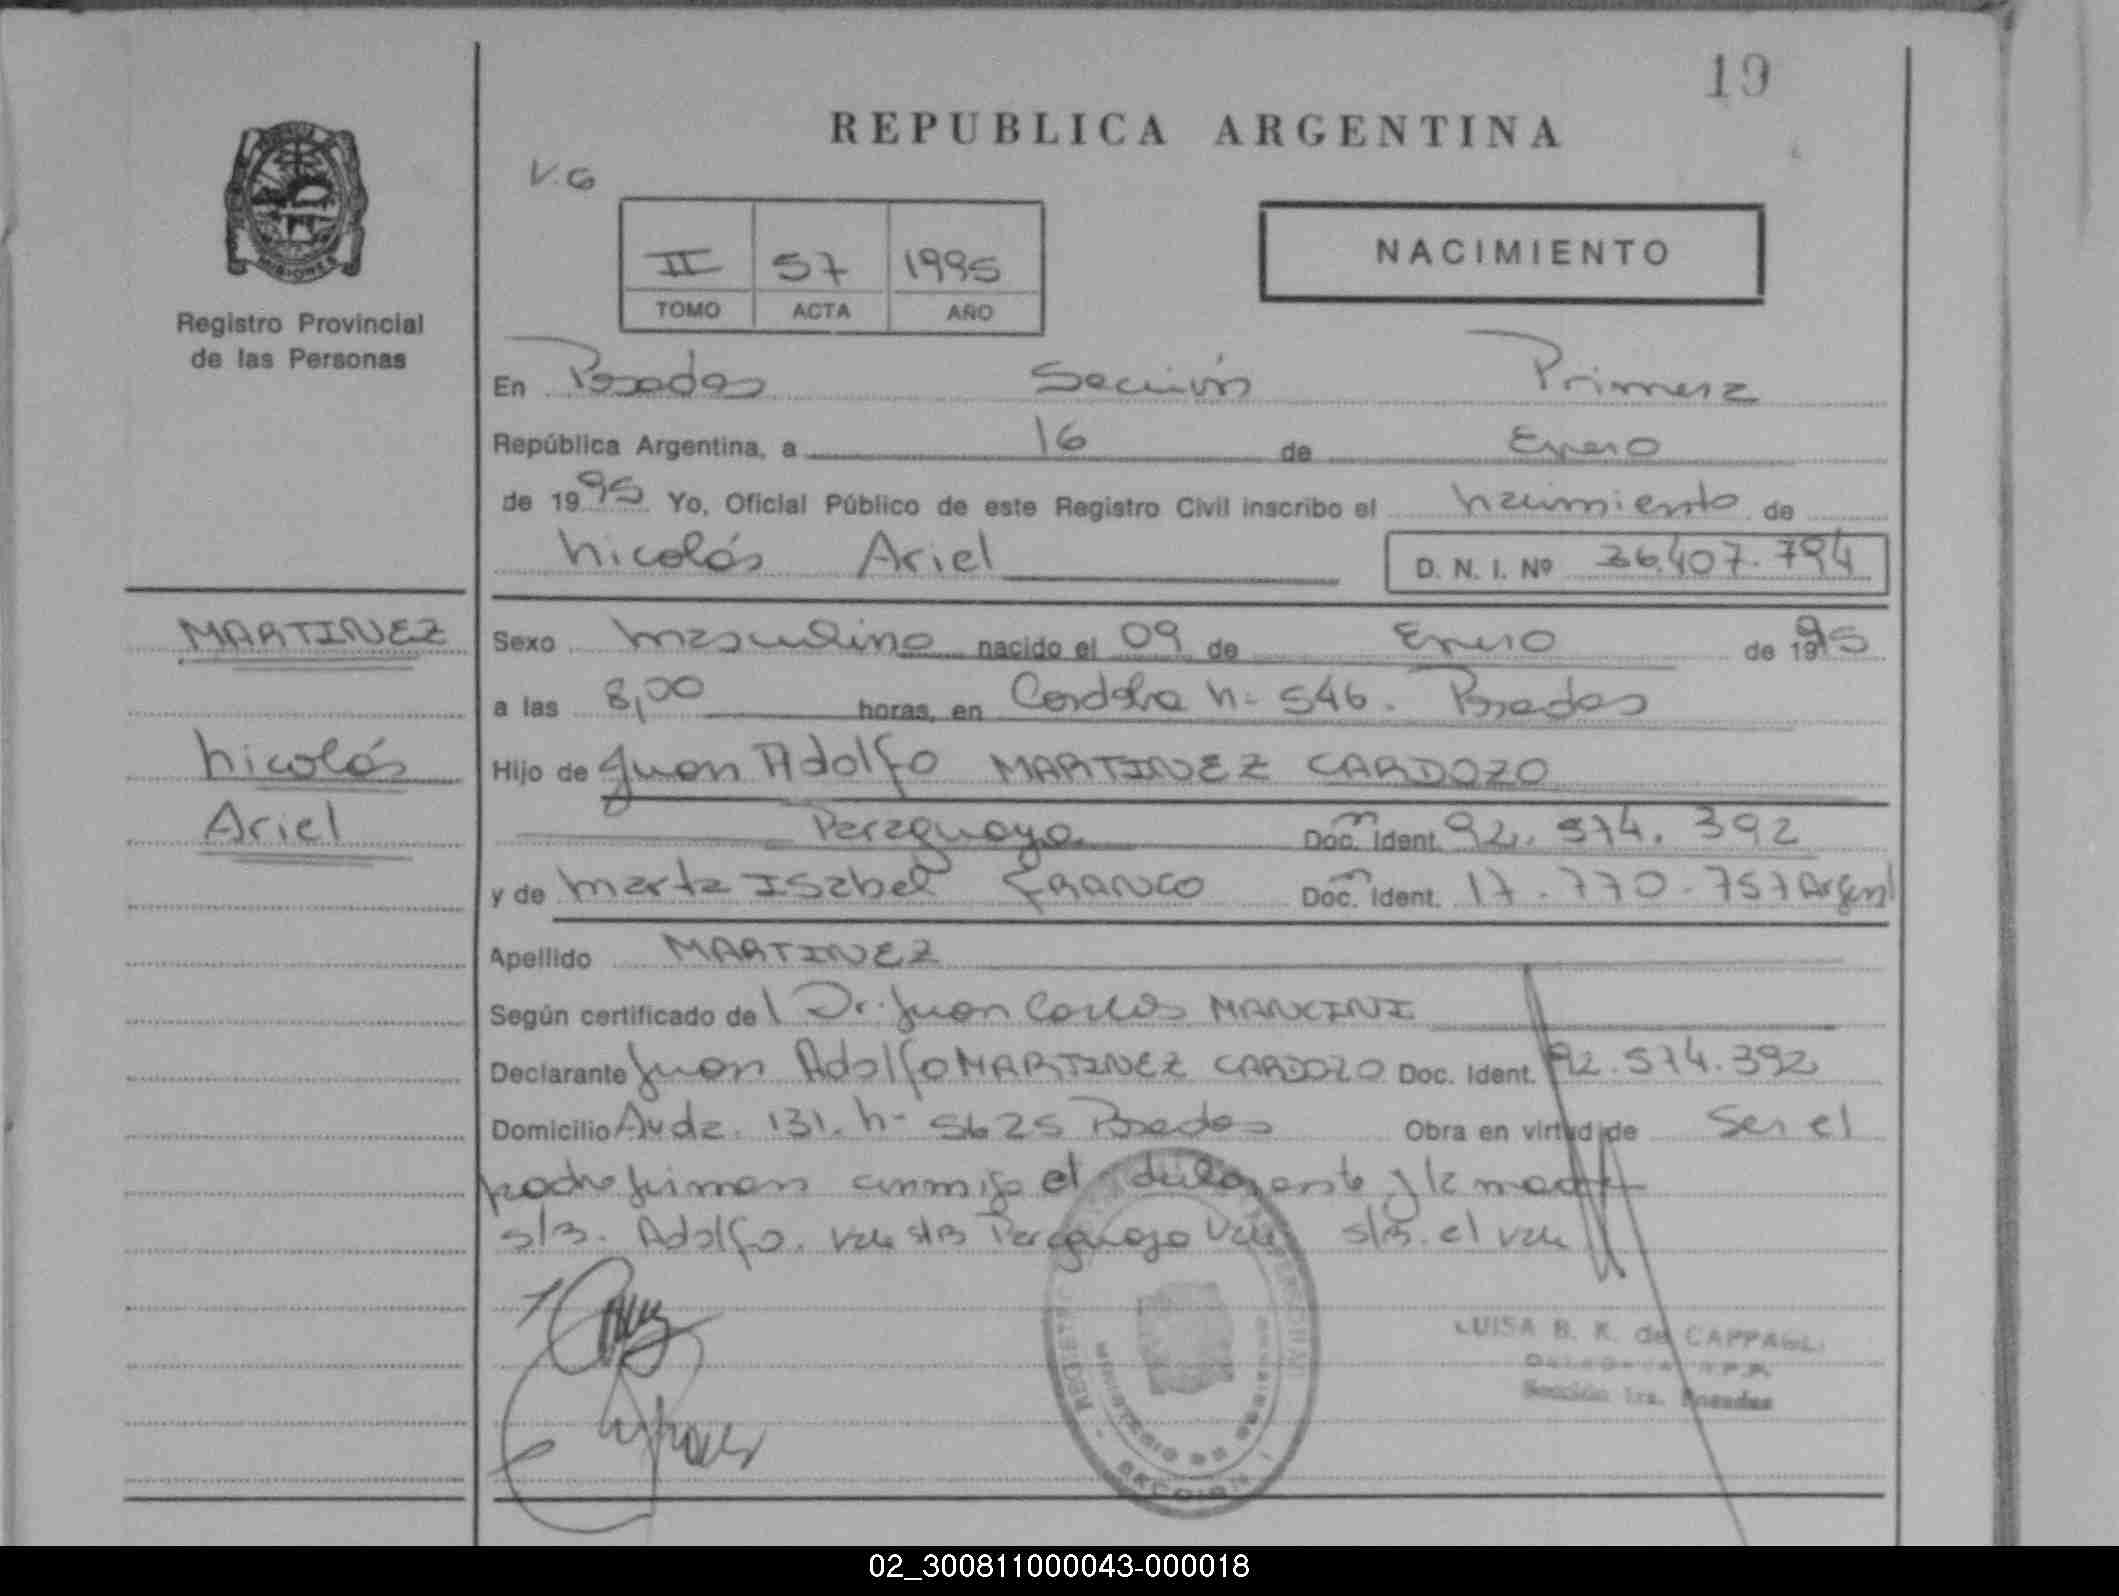 19
REPUBLICA ARGENTINA
V.G
II 57 1995
TOMO ACTA AÑO
NACIMIENTO
MISIONES
Registro Provincial
de las Personas
En Posadas Sección Primera
República Argentina, a 16 de Enero
de 1995 Yo, Oficial Público de este Registro Civil inscribo el nacimiento de
Nicolás Ariel D. N. I. Nº 36.407.794
MARTINEZ
Nicolás
Ariel
Sexo masculino nacido el 09 de Enero de 1995
a las 8,00 horas, en Cordoba n- 546. Posadas
Hijo de Juan Adolfo MARTINEZ CARDOZO
Paraguayo Doc. Ident. 92.574.392
y de Marta Isabel FRANCO Doc. Ident. 17.770.757 Argent
Apellido MARTINEZ
Según certificado del Dr. Juan Carlos MANCINI
Declarante Juan Adolfo MARTINEZ CARDOZO Doc. Ident. 92.574.392
Domicilio Avda. 131. n- 5625 Posadas Obra en virtud de ser el
padre firman conmigo el declarante y la madre
s/r. Adolfo. vale s/r Paraguayo Vale s/r. el vale
LUISA B. K. de CAPPAGLI
Sección 1ra. Posadas
02_300811000043-000018